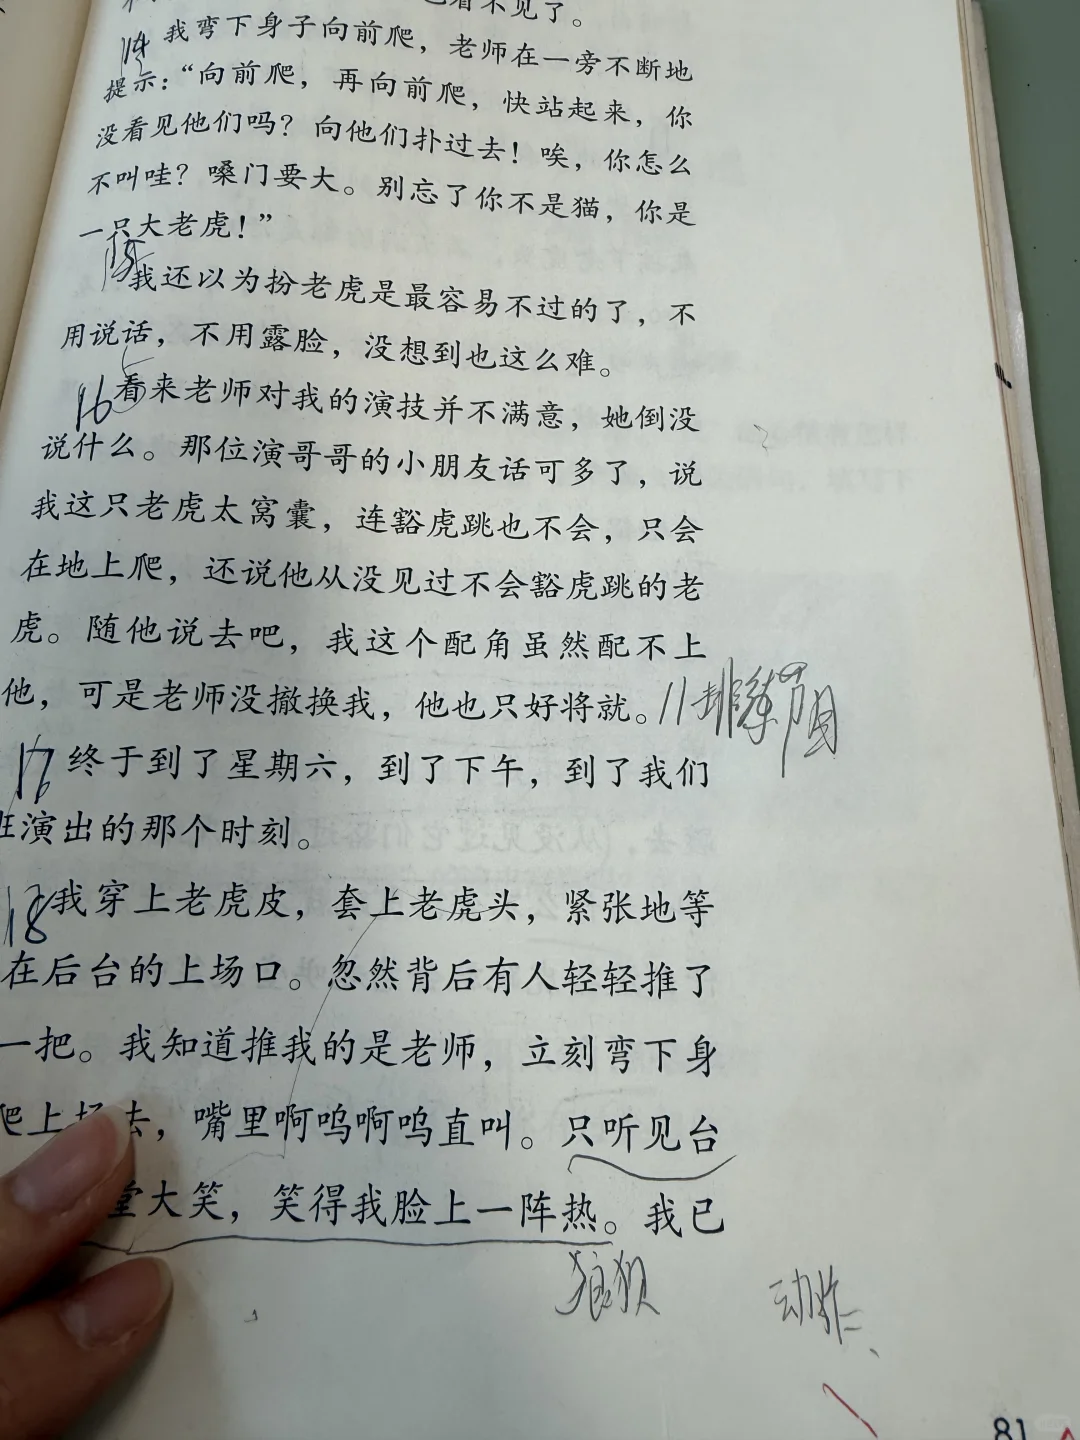 看不见了。
14 我弯下身子向前爬，老师在一旁不断地
提示：“向前爬，再向前爬，快站起来，你
没看见他们吗？向他们扑过去！唉，你怎么
不叫哇？嗓门要大。别忘了你不是猫，你是
一只大老虎！”
15 我还以为扮老虎是最容易不过的了，不
用说话，不用露脸，没想到也这么难。
16 看来老师对我的演技并不满意，她倒没
说什么。那位演哥哥的小朋友话可多了，说
我这只老虎太窝囊，连豁虎跳也不会，只会
在地上爬，还说他从没见过不会豁虎跳的老
虎。随他说去吧，我这个配角虽然配不上
他，可是老师没撤换我，他也只好将就。 // 排练节目
17 终于到了星期六，到了下午，到了我们
班演出的那个时刻。
18 我穿上老虎皮，套上老虎头，紧张地等
在后台的上场口。忽然背后有人轻轻推了
一把。我知道推我的是老师，立刻弯下身
爬上场去，嘴里啊呜啊呜直叫。只听见台
堂大笑，笑得我脸上一阵热。我已
狼狈
动作
81